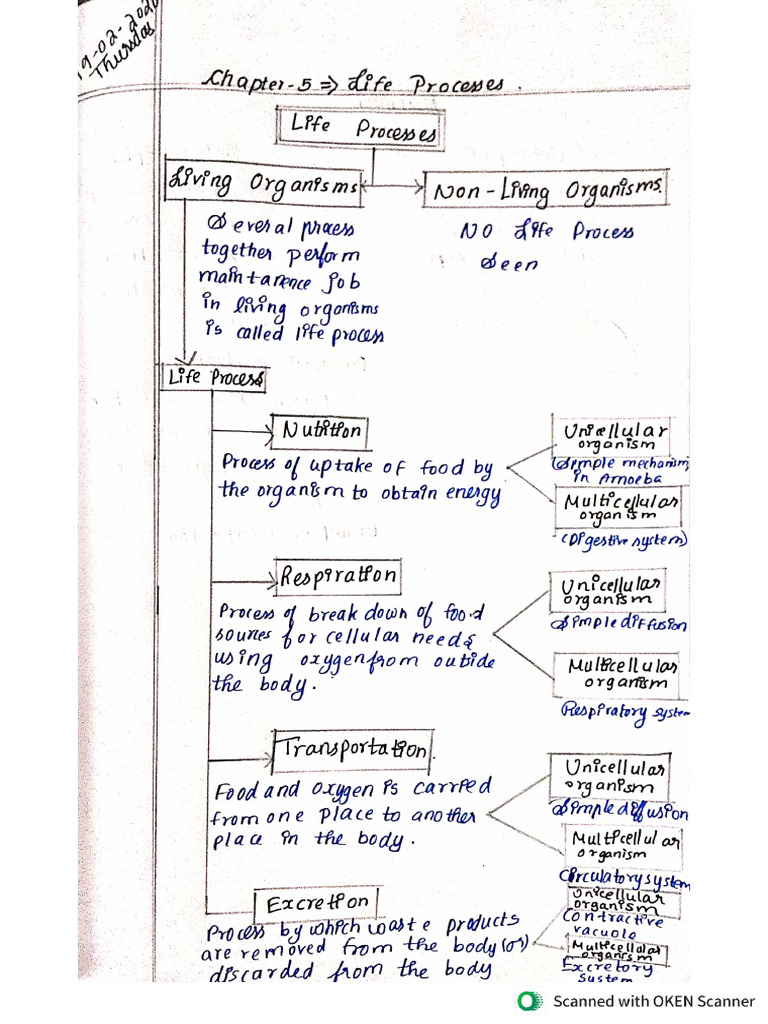 19-02-2026
Thursday
Chapter-5 ⇒ Life Processes.
Life Processes
Living Organisms
Non-Living Organisms.
Several process
together perform
maintarence job
in living organisms
is called life process
NO Life Process
Seen
Life Process
Nutrition
Process of uptake of food by
the organism to obtain energy
Unicellular
organism
(Simple mechanism
in Amoeba
Multicellular
organism
(Digestive system)
Respiration
Process of break down of food
sources for cellular needs
using oxygen from outside
the body.
Unicellular
organism
Simple diffusion
Multicellular
organism
Respiratory system
Transportation.
Food and oxygen is carried
from one place to another
place in the body.
Unicellular
organism
Simple diffusion
Multicellular
organism
Circulatory system
Excretion
Process by which waste products
are removed from the body (or)
discarded from the body
Unicellular
organism
Contractive
vacuole
Multicellular
organism
Excretory
System
Scanned with OKEN Scanner